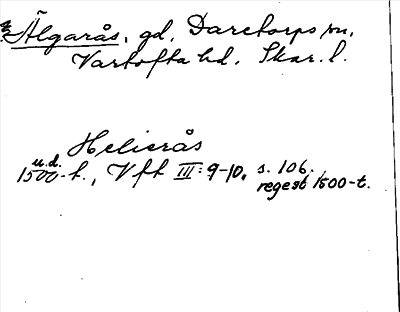 Älgarås, gd, Daretorps sn,
Vartofta hd, Skar. l.
Helierås
u.d.
1500-t., Vft III: 9-10, s. 106.
regest 1500-t.